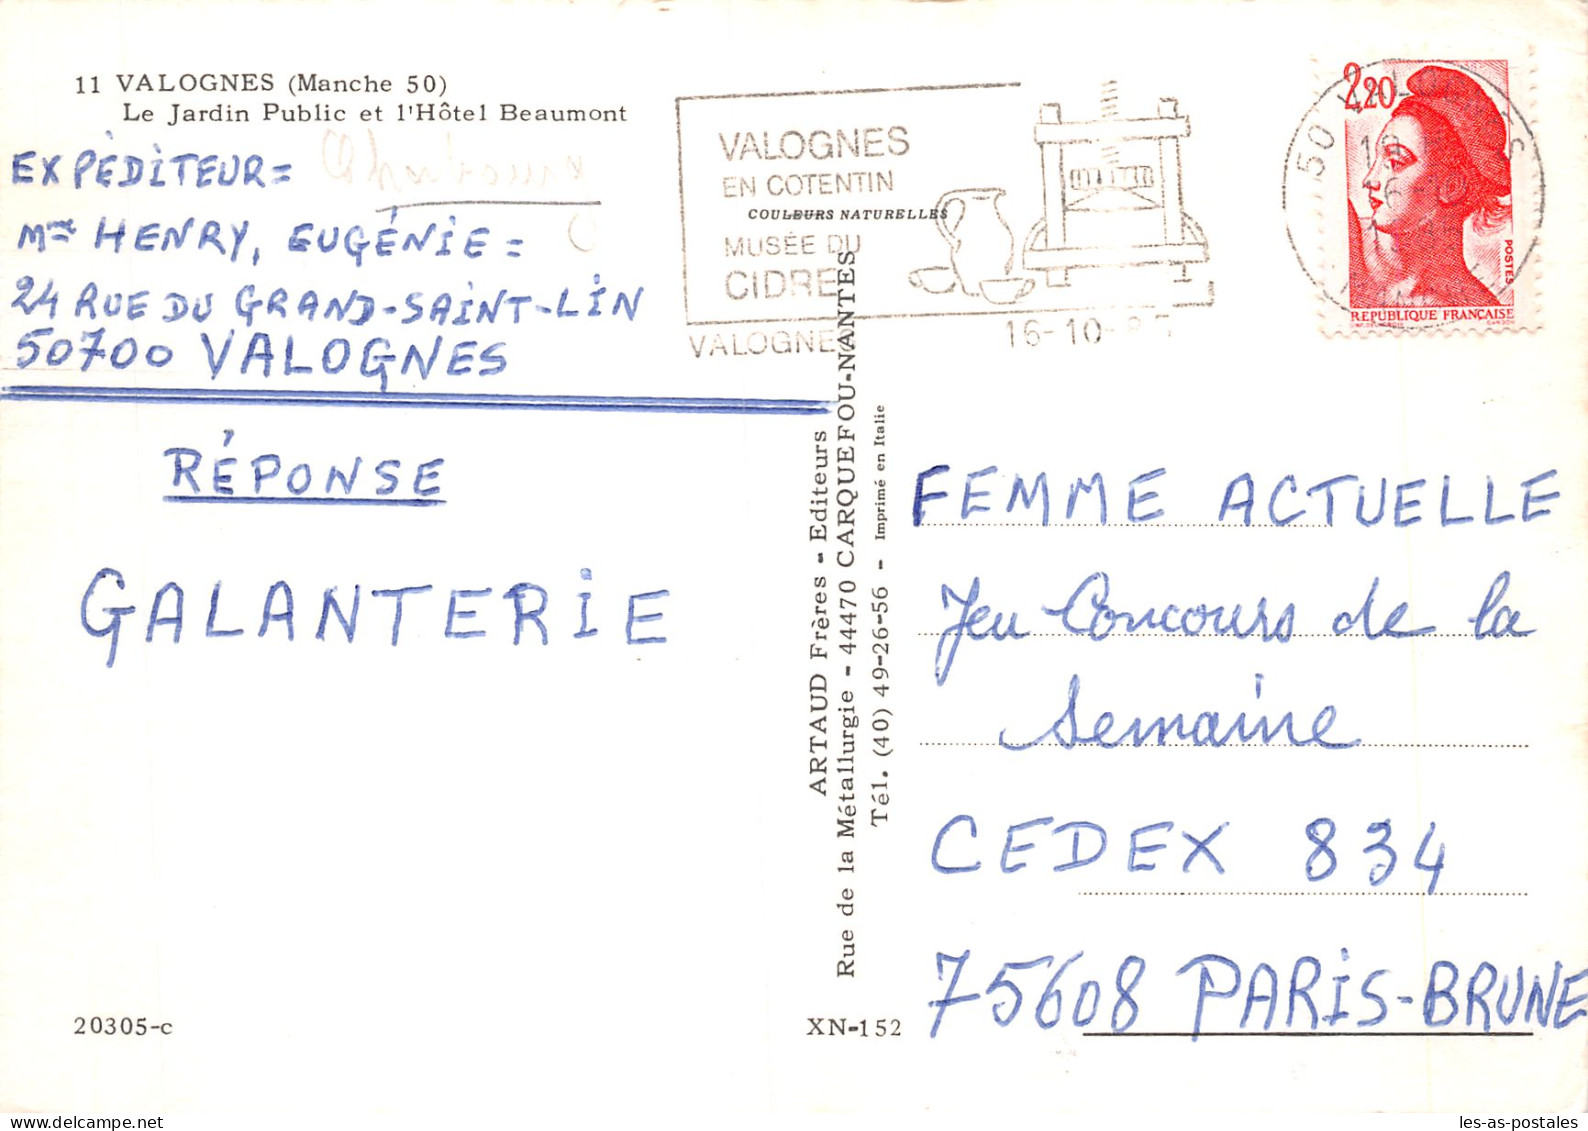 11 VALOGNES (Manche 50)
Le Jardin Public et l'Hôtel Beaumont
EXPÉDITEUR =
Mme HENRY, EUGÉNIE =
24 RUE DU GRAND-SAINT-LIN
50700 VALOGNES
RÉPONSE
GALANTERIE
20305-c
VALOGNES
EN COTENTIN
COULEURS NATURELLES
MUSÉE DU
CIDRE
VALOGNES
16-10
2,20
POSTES
REPUBLIQUE FRANÇAISE
ARTAUD Frères - Editeurs
Rue de la Métallurgie - 44470 CARQUEFOU-NANTES
Tél. (40) 49-26-56 - Imprimé en Italie
XN-152
FEMME ACTUELLE
Jeu Concours de la
Semaine
CEDEX 834
75608 PARIS-BRUNE
les-as-postales